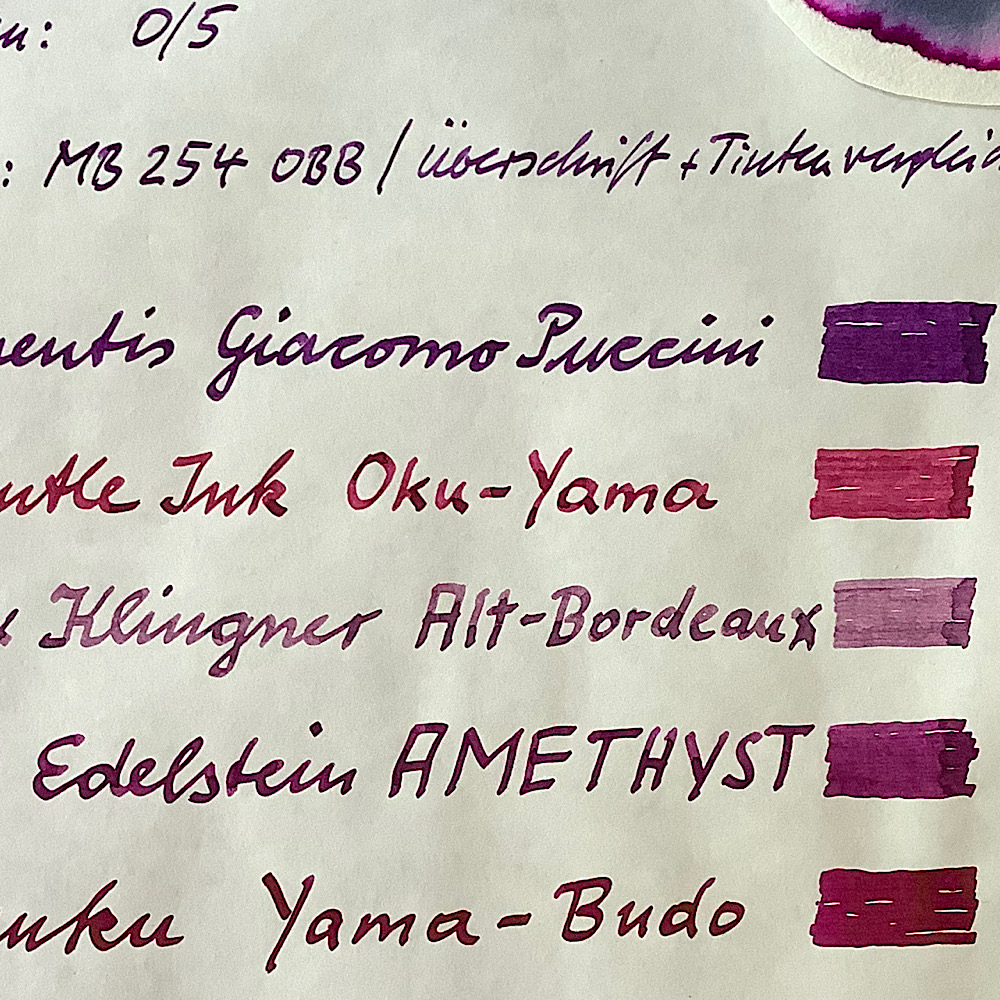 0/5
: MB 254 OBB / Überschrift + Tinten
Giacomo Puccini
Ink Oku-Yama
Klingner Alt-Bordeaux
Edelstein AMETHYST
Yama-Budo